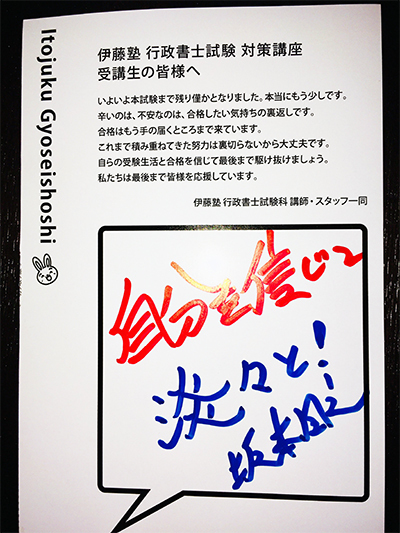 Itojuku Gyoseishoshi
伊藤塾 行政書士試験 対策講座
受講生の皆様へ
いよいよ本試験まで残り僅かとなりました。本当にもう少しです。
辛いのは、不安なのは、合格したい気持ちの裏返しです。
合格はもう手の届くところまで来ています。
これまで積み重ねてきた努力は裏切らないから大丈夫です。
自らの受験生活と合格を信じて最後まで駆け抜けましょう。
私たちは最後まで皆様を応援しています。
伊藤塾 行政書士試験科 講師・スタッフ一同
自分を信じて
淡々と!
坂本